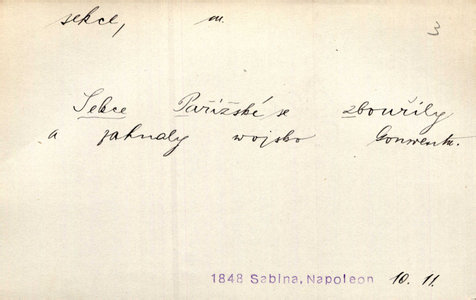 sekce, m. 3
Sekce Pařížské se zbouřily
a jahnaly wojsko Conwentu.
1848 Sabina, Napoleon 10. 11.